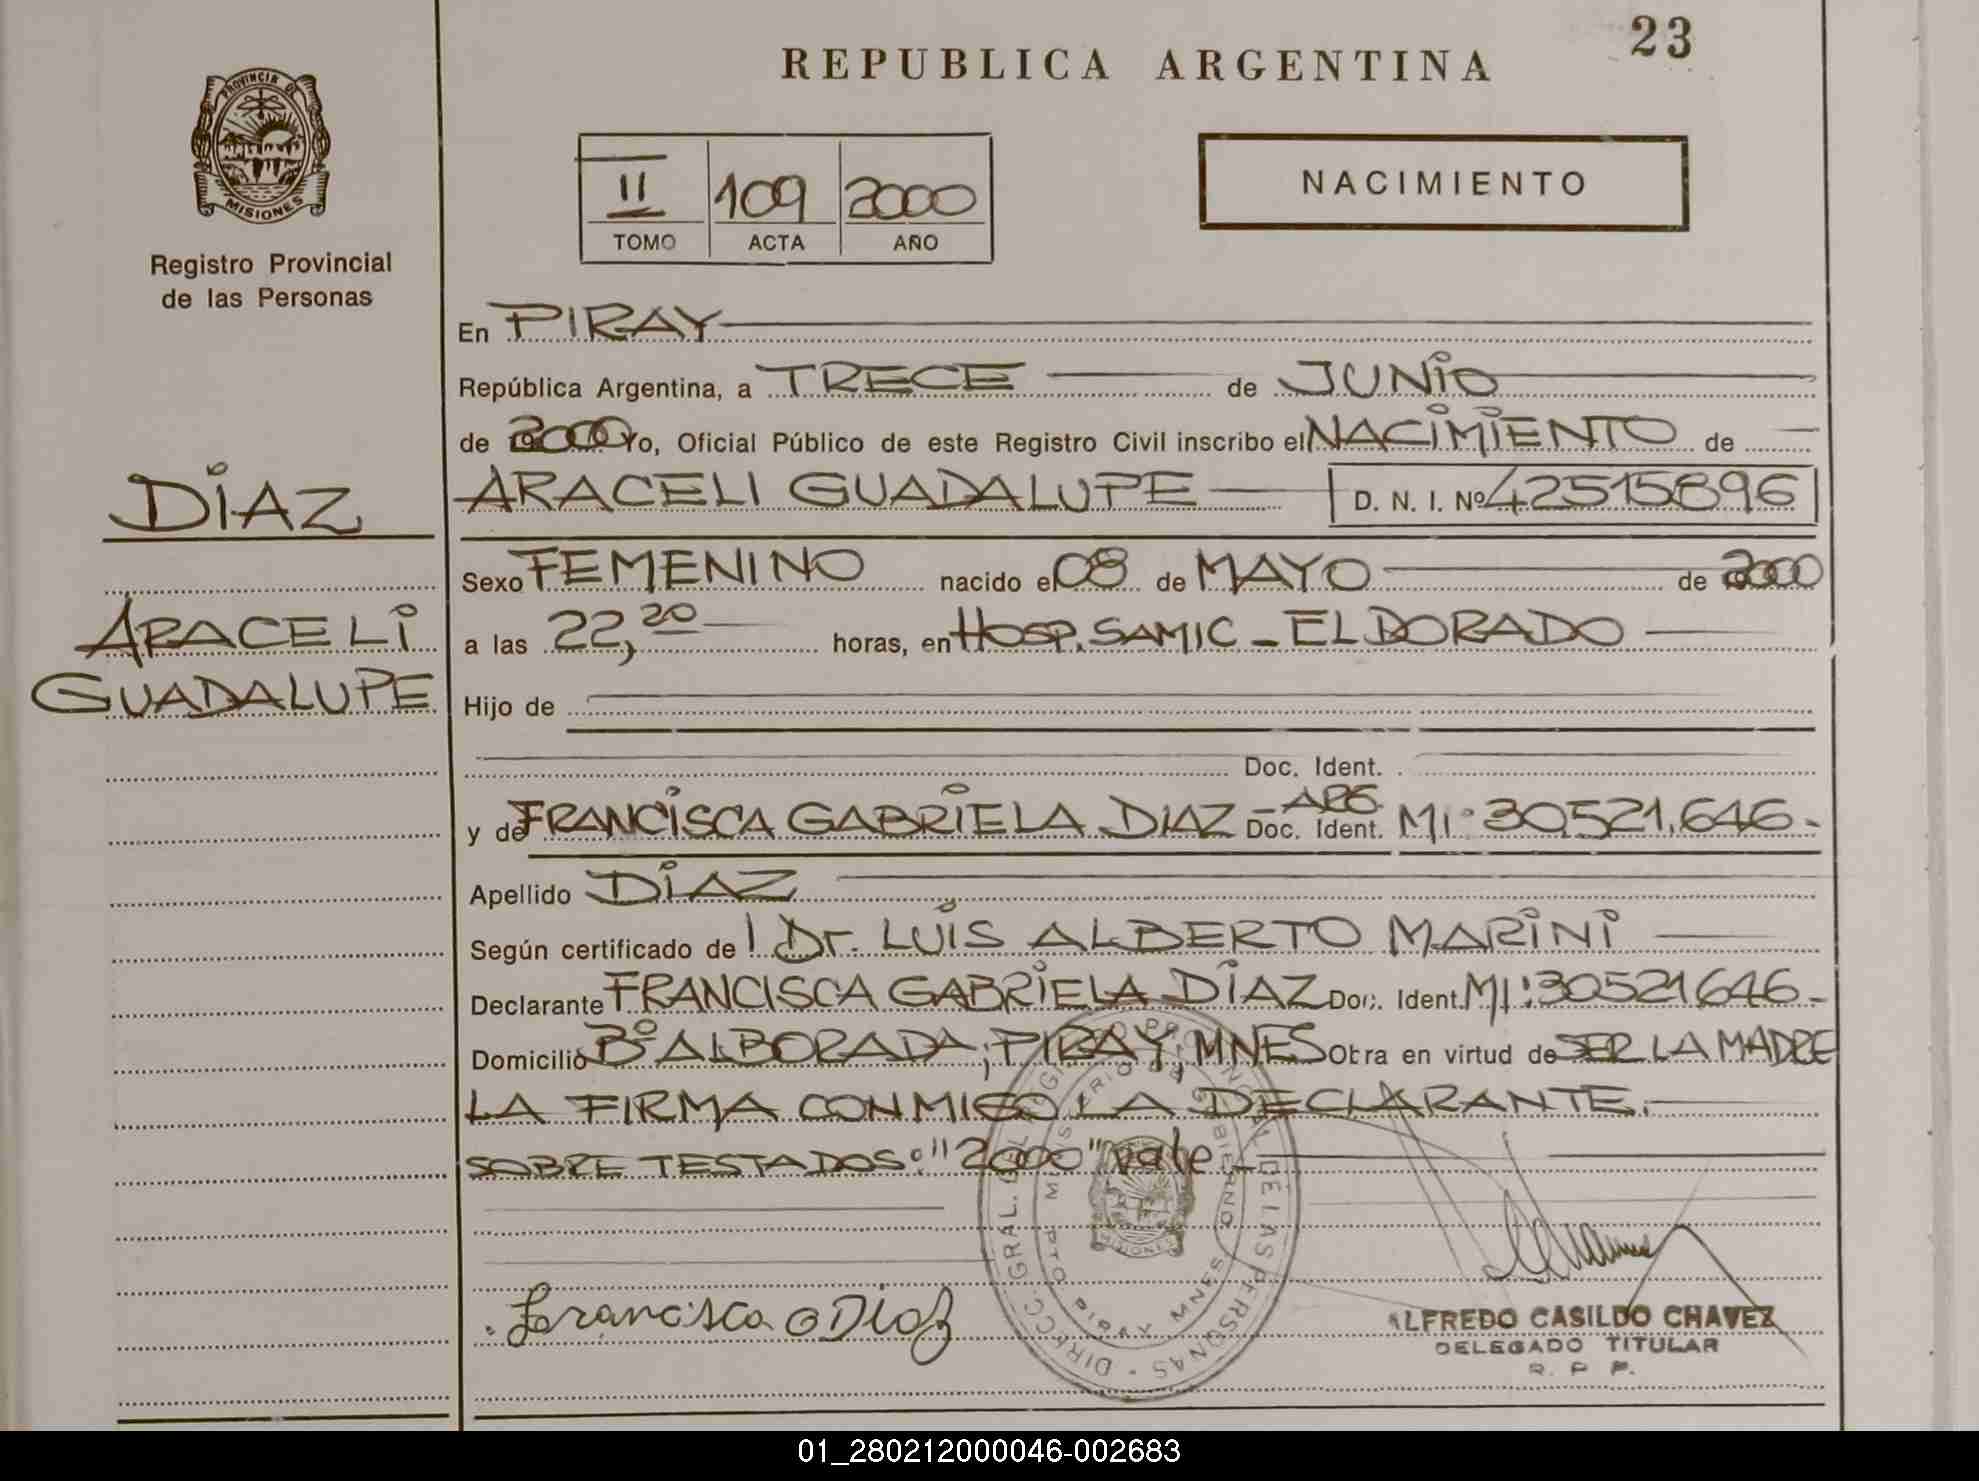 23
REPUBLICA ARGENTINA
PROVINCIA DE
MISIONES
Registro Provincial
de las Personas
II 109 2000
TOMO ACTA AÑO
NACIMIENTO
En PIRAY
República Argentina, a TRECE de JUNIO
de 2000 Yo, Oficial Público de este Registro Civil inscribo el NACIMIENTO de
DIAZ
ARACELI GUADALUPE D. N. I. Nº 42515896
Sexo FEMENINO nacido el 08 de MAYO de 2000
ARACELI
GUADALUPE
a las 22,20 horas, en HOSP. SAMIC - ELDORADO
Hijo de
Doc. Ident.
y de FRANCISCA GABRIELA DIAZ - ARG. Doc. Ident. MI: 30.521.646.-
Apellido DIAZ
Según certificado de l Dr. LUIS ALBERTO MARINI
Declarante FRANCISCA GABRIELA DIAZ Doc. Ident. MI: 30521646-
Domicilio Bº ALBORADA, PIRAY, MNES Obra en virtud de SER LA MADRE
LA FIRMA CONMIGO LA DECLARANTE.
SOBRE TESTADOS: "2000" vale -
Francisca G Diaz
ALFREDO CASILDO CHAVEZ
DELEGADO TITULAR
R. P. P.
DIRECC. GRAL. DEL REGISTRO PROVINCIAL DE LAS PERSONAS
MINISTERIO DE GOBIERNO
PTO PIRAY MNES
MISIONES
01_280212000046-002683